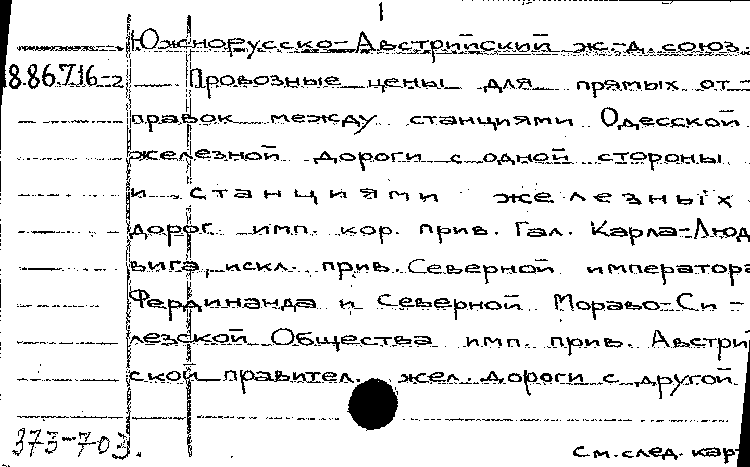 1
Южнорусско-Австрийский ж.-д. союз.
18.86.716-2 Провозные цены для прямых от-
правок между станциями Одесской
железной дороги с одной стороны
и станциями железных
дорог имп. кор. прив. Гал. Карла-Люд
вига, искл. прив. Северной императора
Фердинанда и Северной Мораво-Си-
лезской Общества имп. прив. Австрий
ской правител. жел. дороги с другой
373-703.
См. след. кар